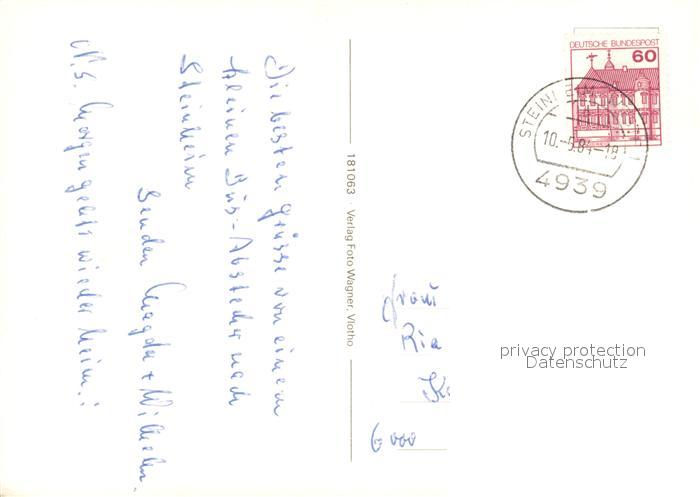 Die besten Grüsse von einem
kleinen Bus-Abstecher nach
Steinheim
senden Magda + Wilhelm.
N.S. Morgen geht's wieder heim!
181063 · Verlag Foto Wagner, Vlotho
DEUTSCHE BUNDESPOST
60
STEINHEIM
10.-5.84-18
4939
Frau
Ria
K
6000
privacy protection
Datenschutz